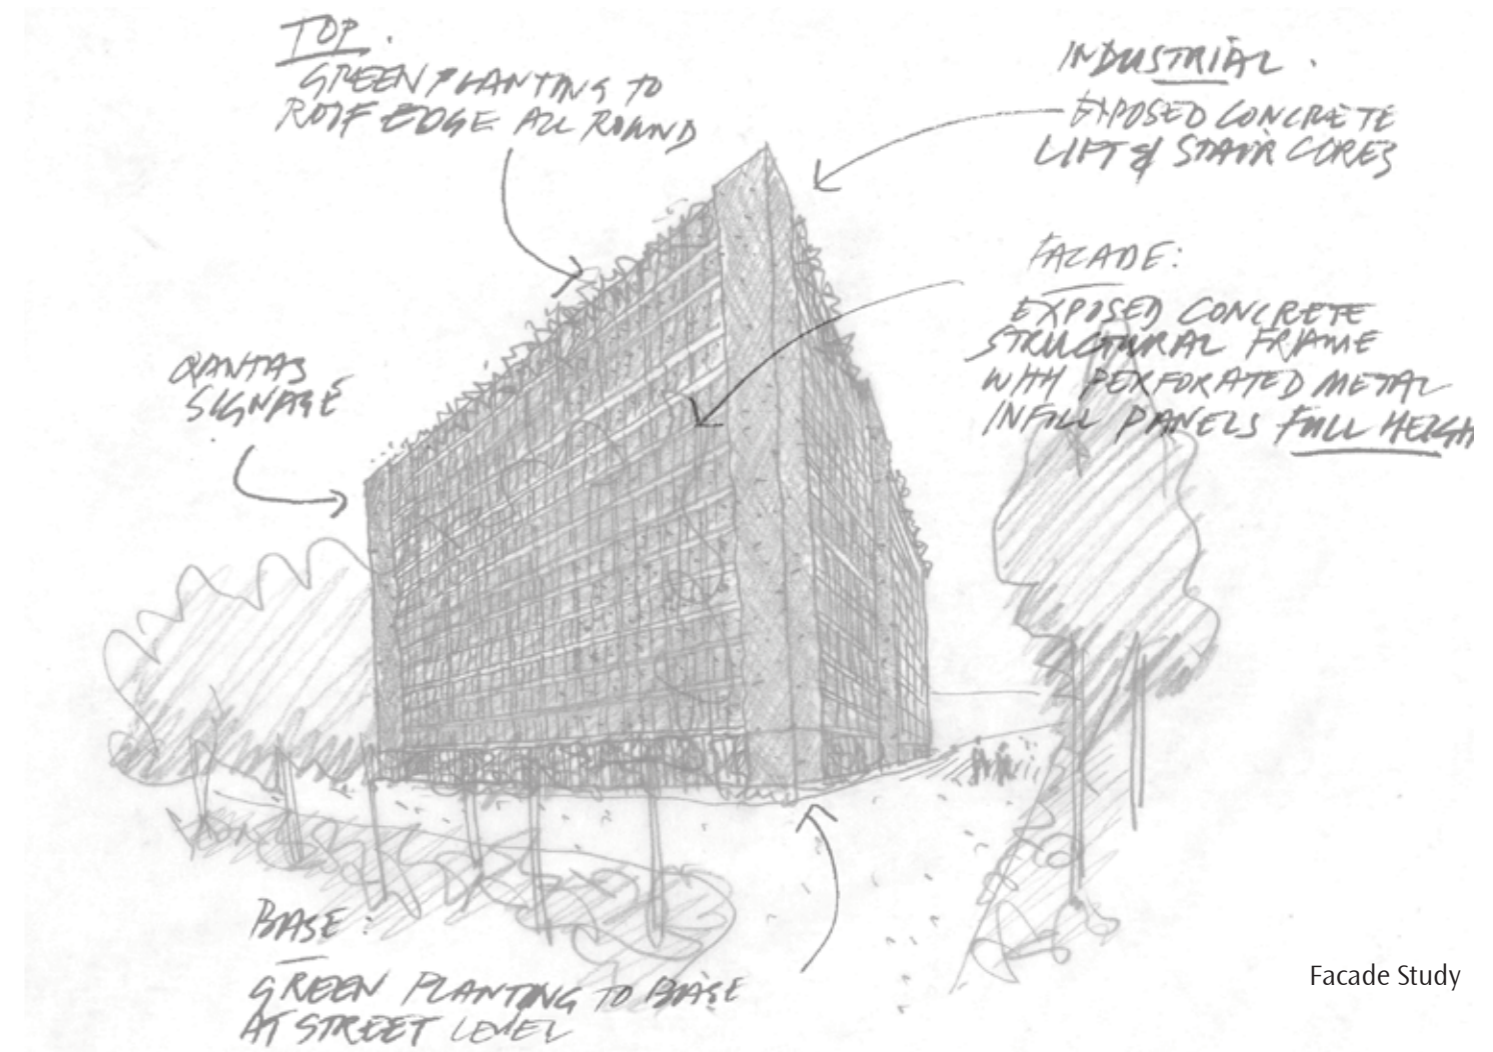 TOP.
GREEN PLANTING TO
ROOF EDGE ALL ROUND
INDUSTRIAL.
EXPOSED CONCRETE
LIFT & STAIR CORES
FACADE:
EXPOSED CONCRETE
STRUCTURAL FRAME
WITH PERFORATED METAL
INFILL PANELS FULL HEIGH
QANTAS
SIGNAGE
BASE:
GREEN PLANTING TO BASE
AT STREET LEVEL
Facade Study